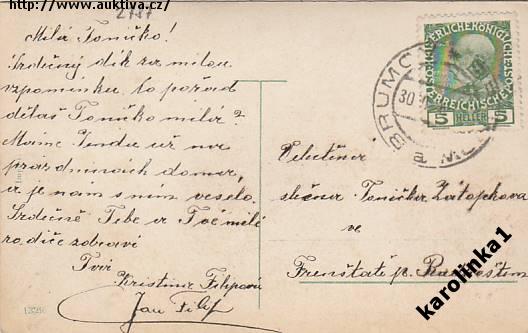 http://www.auktiva.cz/
2717
Milá Toničko!
Srdečný dík za milou
vzpomínku. Co pořád
děláš Toničko milá?
Máme Jendu už na
prázdninách doma,
a je nám s ním veselo.
Srdečně Tebe a Tvé milé
rodiče zdraví
Tvoji
Kristina Filipová
Jan Filip
13296
KAISERLICHE KÖNIGL
ÖSTERREICHISCHE POST
5 HELLER 5
BRUMO
30
a
Velectěná
slečna Tonička Zátopkova
ve
Frenštátě p. Radhoštěm
karolinka1